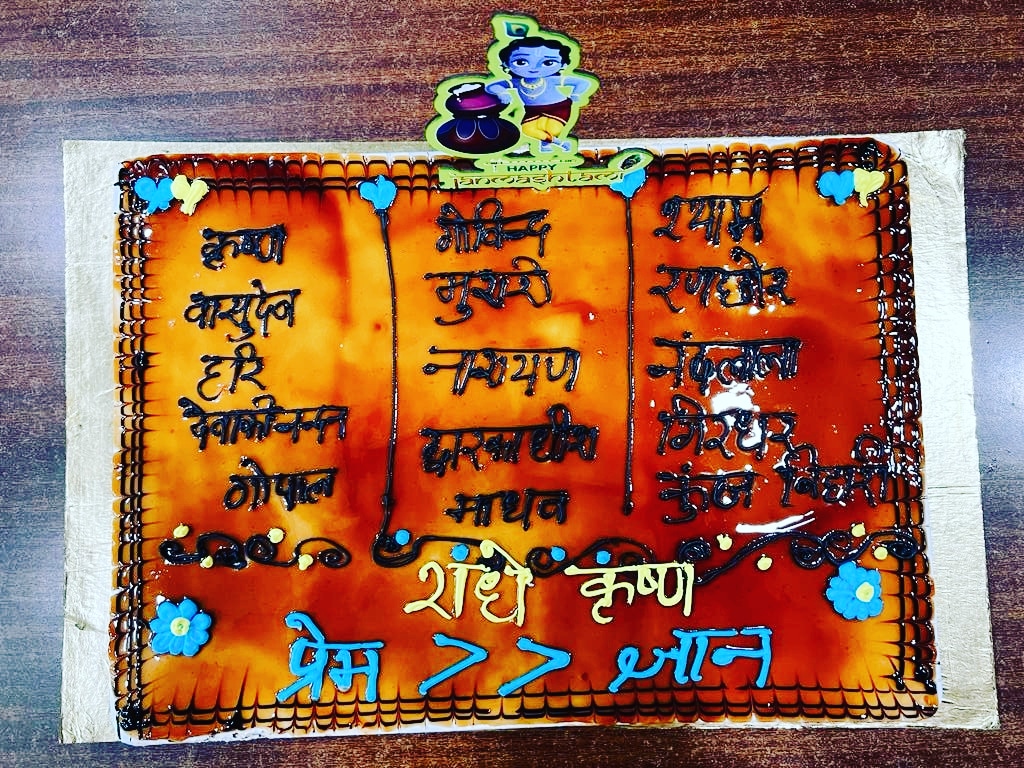 HAPPY
janmashtami
कृष्ण
वासुदेव
हरि
देवाकीनन्दन
गोपाल
गोविन्द
मुरारी
नारायण
द्वारकाधीश
माधव
श्याम
रणछोर
नंदलाला
गिरधर
कुंज बिहारी
राधे कृष्ण
प्रेम >> ज्ञान